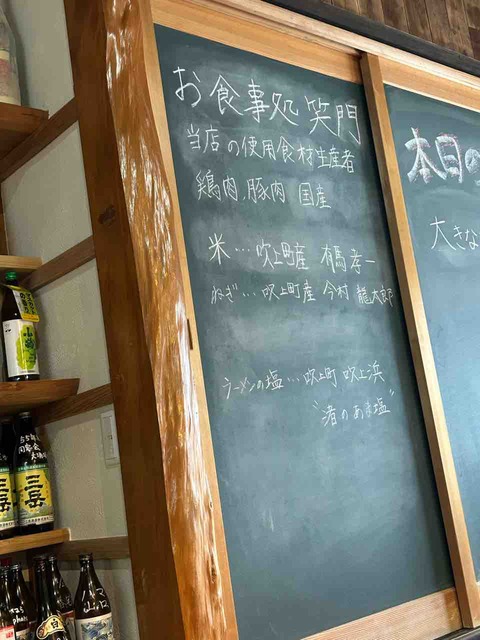 お食事処 笑門
当店の使用食材生産者
鶏肉、豚肉 国産
米…吹上町産 有馬 孝一
ねぎ…吹上町産 今村 龍太郎
ラーメンの塩…吹上町 吹上浜
"渚のあま塩"
本日の
大きな
三岳
三岳